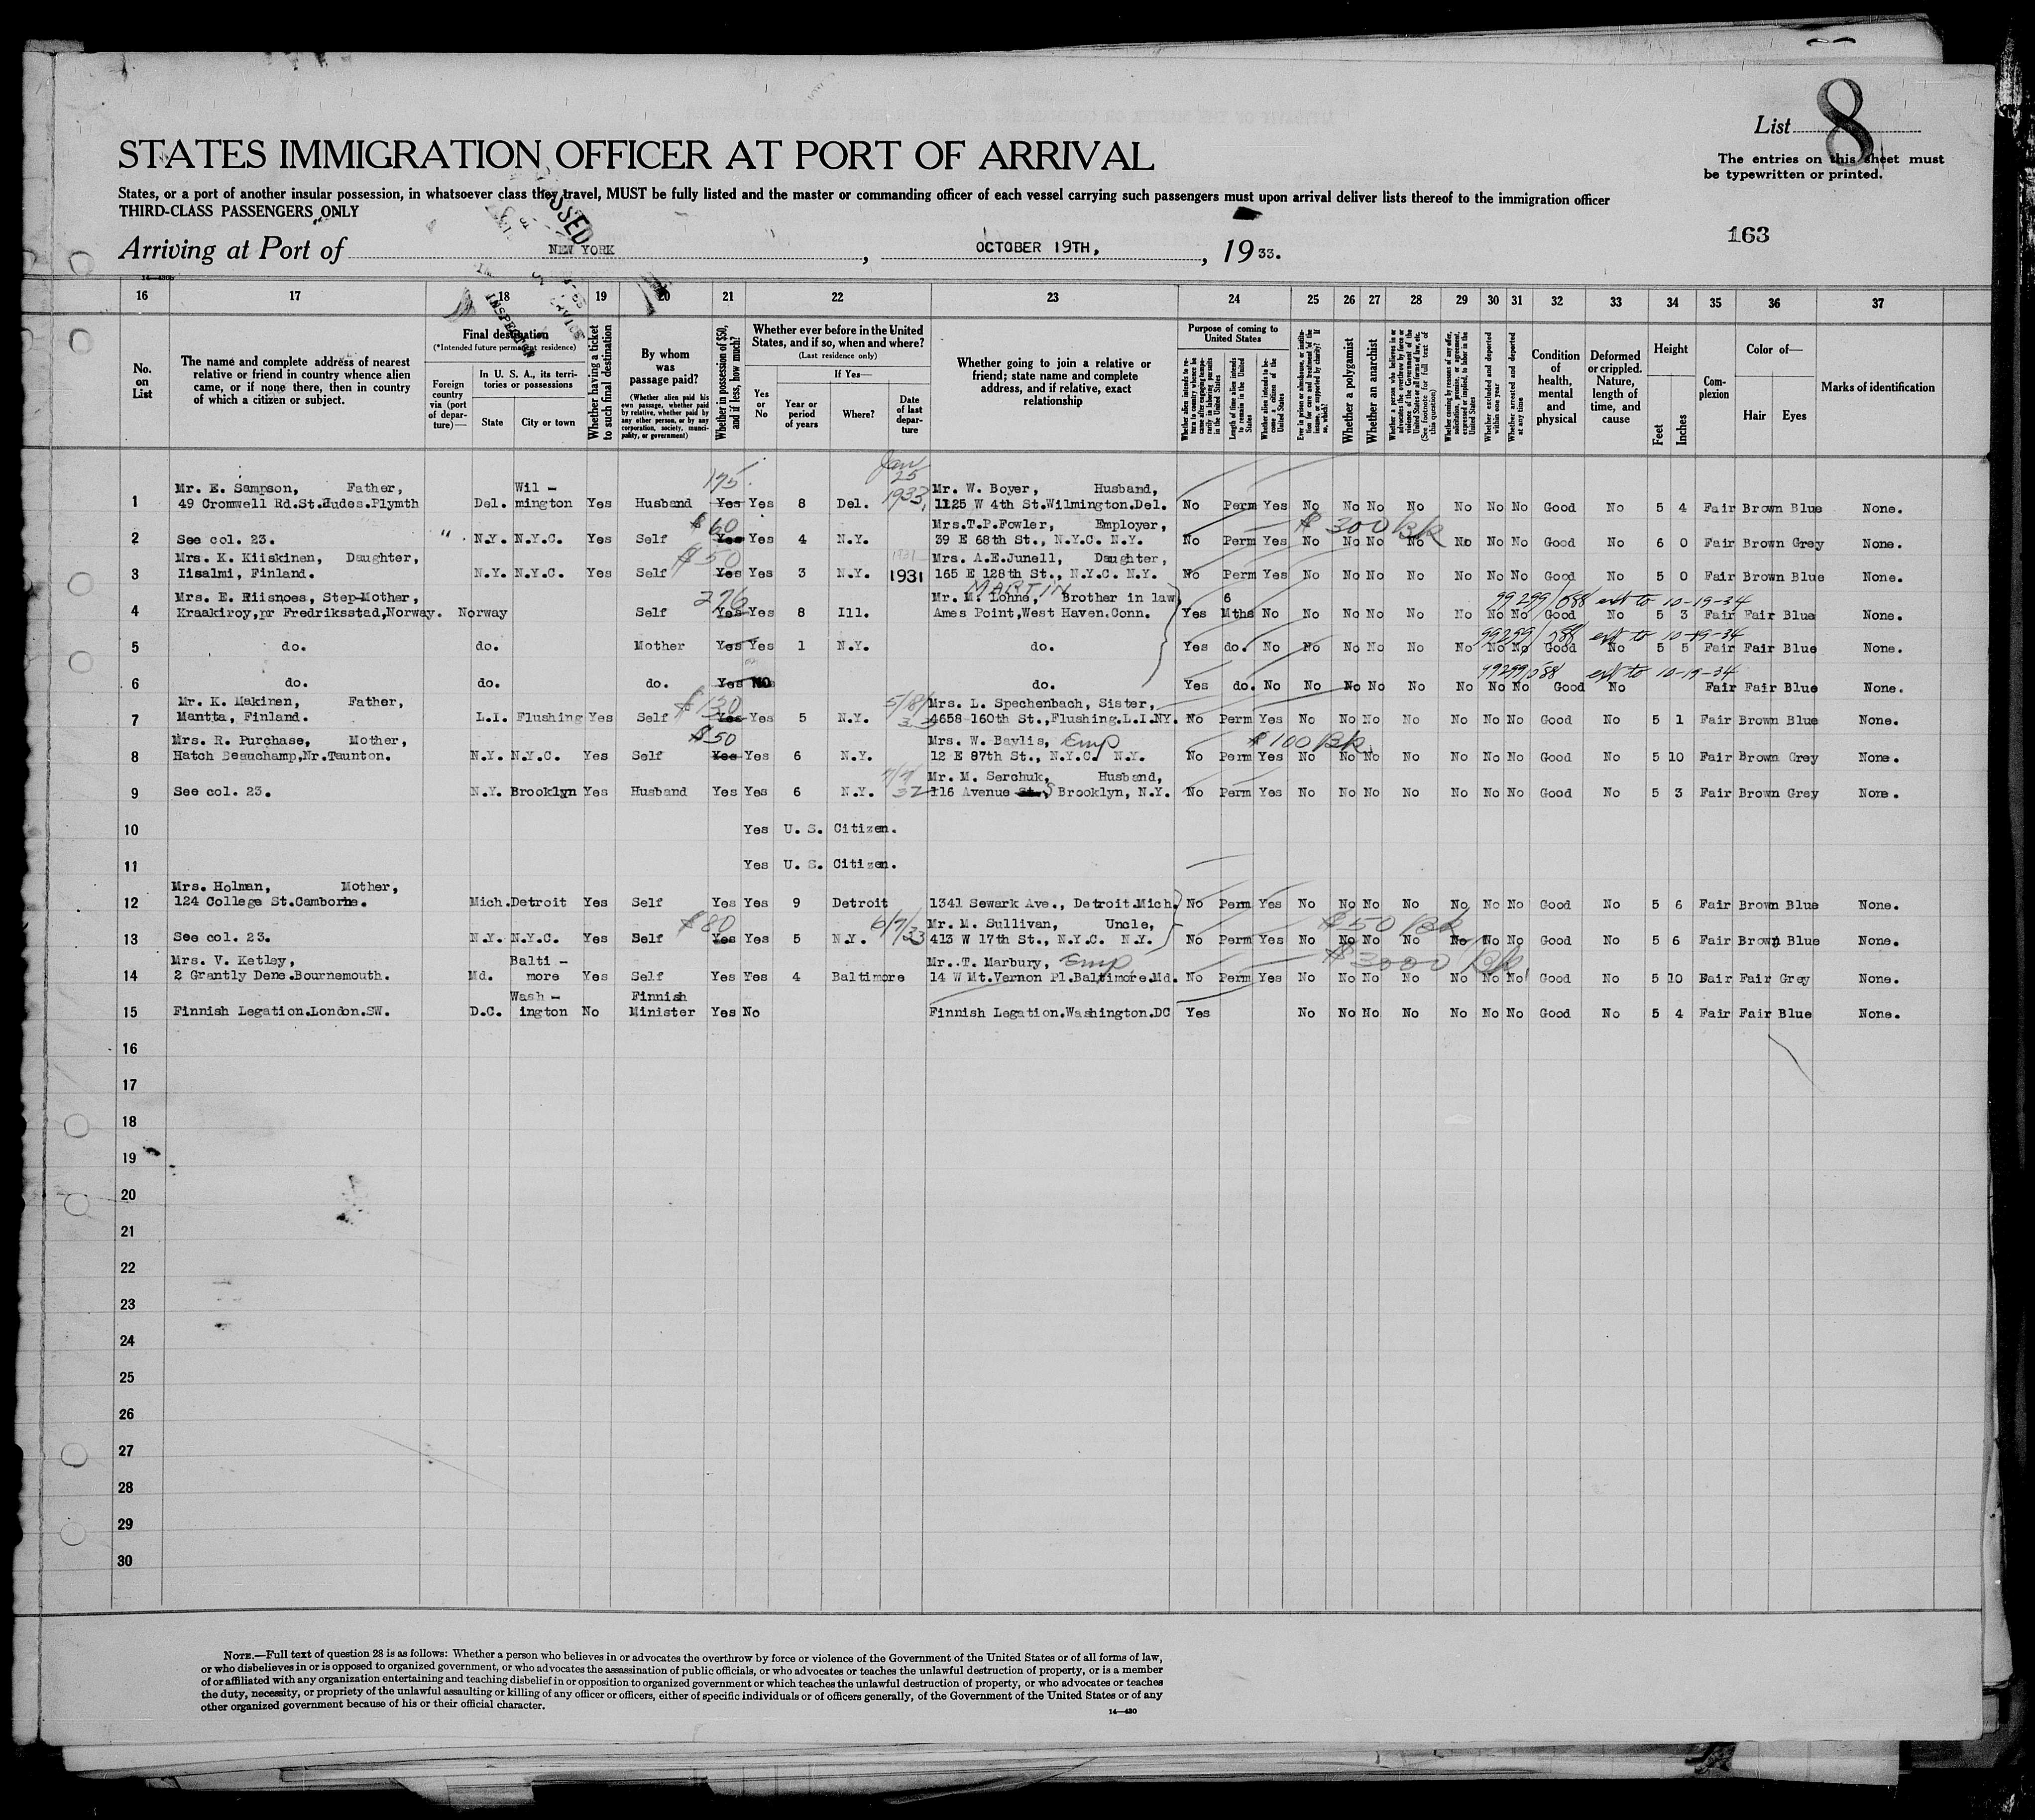 List 8
STATES IMMIGRATION OFFICER AT PORT OF ARRIVAL
The entries on this sheet must
be typewritten or printed.
States, or a port of another insular possession, in whatsoever class they travel, MUST be fully listed and the master or commanding officer of each vessel carrying such passengers must upon arrival deliver lists thereof to the immigration officer
THIRD-CLASS PASSENGERS ONLY
163
Arriving at Port of NEW YORK, OCTOBER 19TH, 1933.
16 17 18 19 20 21 22 23 24 25 26 27 28 29 30 31 32 33 34 35 36 37
No. on List
The name and complete address of nearest relative or friend in country whence alien came, or if none there, then in country of which a citizen or subject.
Final destination
(*Intended future permanent residence)
Foreign country via (port of departure)—
In U. S. A., its territories or possessions
State
City or town
Whether having a ticket to such final destination
By whom was passage paid?
(Whether alien paid his own passage, whether paid by relative, whether paid by any other person, or by any corporation, society, municipality, or government)
Whether in possession of $50, and if less, how much?
Whether ever before in the United States, and if so, when and where?
(Last residence only)
Yes or No
If Yes—
Year or period of years
Where?
Date of last departure
Whether going to join a relative or friend; state name and complete address, and if relative, exact relationship
Purpose of coming to United States
Length of time alien intends to remain in the United States
Whether alien intends to become a citizen of the United States
Whether a polygamist
Whether an anarchist
Whether excluded and deported within one year
Whether arrested and deported at any time
Condition of health, mental and physical
Deformed or crippled. Nature, length of time, and cause
Height
Feet
Inches
Complexion
Color of—
Hair Eyes
Marks of identification
Mr. E. Sampson, Father, Wil - 175. Jan 25 1933 Mr. W. Boyer, Husband,
1 49 Cromwell Rd.St.Judes.Plymth Del. mington Yes Husband Yes Yes 8 Del. 1125 W 4th St.Wilmington.Del. No Perm Yes No No No No No No No Good No 5 4 Fair Brown Blue None.
$60 Mrs.T.P.Fowler, Employer, $300 Bk
2 See col. 23. " N.Y. N.Y.C. Yes Self Yes Yes 4 N.Y. 39 E 68th St., N.Y.C. N.Y. No Perm Yes No No No No No No No Good No 6 0 Fair Brown Grey None.
Mrs. K. Kiiskinen, Daughter, $50 1931 Mrs. A.E.Junell, Daughter,
3 Iisalmi, Finland. N.Y. N.Y.C. Yes Self Yes Yes 3 N.Y. 1931 165 E 128th St., N.Y.C. N.Y. No Perm Yes No No No No No No No Good No 5 0 Fair Brown Blue None.
Mrs. E. Riisnoes, Step-Mother, 276 MARTIN Mr. M. Lohne, Brother in law 6 99299/588 ext to 10-19-34
4 Kraakiroy,pr Fredriksstad,Norway. Norway Self Yes Yes 8 Ill. Ames Point,West Haven.Conn. Yes Mths No No No No No No No No Good No 5 3 Fair Fair Blue None.
99299/588 ext to 10-19-34
5 do. do. Mother Yes Yes 1 N.Y. do. Yes do. No No No No No No No No Good No 5 5 Fair Fair Blue None.
99299/588 ext to 10-19-34
6 do. do. do. Yes No do. Yes do. No No No No No No No No Good No Fair Fair Blue None.
Mr. K. Makinen, Father, $130 Mrs. L. Spechenbach, Sister,
7 Mantta, Finland. L.I. Flushing Yes Self Yes Yes 5 N.Y. 4658-160th St.,Flushing.L.I.NY. No Perm Yes No No No No No No No Good No 5 1 Fair Brown Blue None.
Mrs. R. Purchase, Mother, $50 Mrs. W. Baylis, Emp $100 Bk.
8 Hatch Beauchamp,Nr.Taunton. N.Y. N.Y.C. Yes Self Yes Yes 6 N.Y. 12 E 87th St., N.Y.C. N.Y. No Perm Yes No No No No No No No Good No 5 10 Fair Brown Grey None.
Mr. M. Serchuk, Husband,
9 See col. 23. N.Y. Brooklyn Yes Husband Yes Yes 6 N.Y. 116 Avenue S Brooklyn, N.Y. No Perm Yes No No No No No No No Good No 5 3 Fair Brown Grey None.
10 Yes U. S. Citizen.
11 Yes U. S. Citizen.
Mrs. Holman, Mother,
12 124 College St.Camborne. Mich. Detroit Yes Self Yes Yes 9 Detroit 1341 Sewark Ave., Detroit.Mich. No Perm Yes No No No No No No No Good No 5 6 Fair Brown Blue None.
$80 6/7/33 Mr. M. Sullivan, Uncle, $50 Bk
13 See col. 23. N.Y. N.Y.C. Yes Self Yes Yes 5 N.Y. 413 W 17th St., N.Y.C. N.Y. No Perm Yes No No No No No No No Good No 5 6 Fair Brown Blue None.
Mrs. V. Ketley, Balti - Mr. T. Marbury, Emp $3000 Bk.
14 2 Grantly Dene.Bournemouth. Md. more Yes Self Yes Yes 4 Baltimore 14 W Mt.Vernon Pl.Baltimore.Md. No Perm Yes No No No No No No No Good No 5 10 Fair Fair Grey None.
Wash - Finnish
15 Finnish Legation.London.SW. D.C. ington No Minister Yes No Finnish Legation.Washington.DC Yes No No No No No No No Good No 5 4 Fair Fair Blue None.
16
17
18
19
20
21
22
23
24
25
26
27
28
29
30
NOTE.—Full text of question 28 is as follows: Whether a person who believes in or advocates the overthrow by force or violence of the Government of the United States or of all forms of law,
or who disbelieves in or is opposed to organized government, or who advocates the assassination of public officials, or who advocates or teaches the unlawful destruction of property, or is a member
of or affiliated with any organization entertaining and teaching disbelief in or opposition to organized government or which teaches the unlawful destruction of property, or who advocates or teaches
the duty, necessity, or propriety of the unlawful assaulting or killing of any officer or officers, either of specific individuals or of officers generally, of the Government of the United States or of any
other organized government because of his or their official character.
14—430